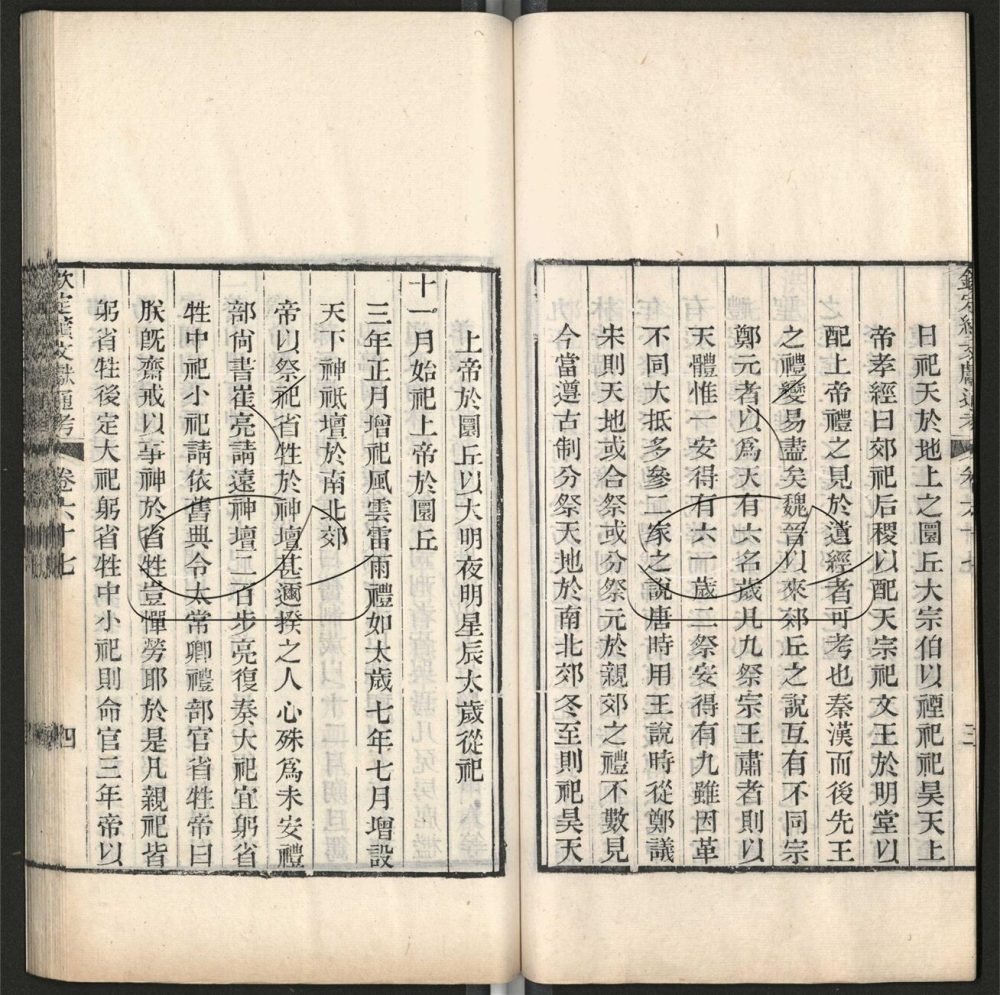 欽定續文獻通考 卷六十七 三
日祀天於地上之圜丘大宗伯以禋祀祀昊天上
帝孝經曰郊祀后稷以配天宗祀文王於明堂以
配上帝禮之見於遺經者可考也秦漢而後先王
之禮變易盡矣魏晉以來郊丘之說互有不同宗
鄭元者以爲天有六名歲凡九祭宗王肅者則以
天體惟一安得有六一歲二祭安得有九雖因革
不同大抵多參二家之說唐時用王說時從鄭議
宋則天地或合祭或分祭元於親郊之禮不數見
今當遵古制分祭天地於南北郊冬至則祀昊天
上帝於圜丘以大明夜明星辰太歲從祀
十一月始祀上帝於圜丘
三年正月增祀風雲雷雨禮如太歲七年七月增設
天下神祇壇於南北郊
帝以祭祀省牲於神壇甚邇揆之人心殊爲未安禮
部尚書崔亮請遠神壇二百步亮復奏大祀宜躬省
牲中祀小祀請依舊典令太常卿禮部官省牲帝曰
朕既齋戒以事神於省牲豈憚勞耶於是凡親祀皆
躬省牲後定大祀躬省牲中小祀則命官三年帝以
欽定續文獻通考 卷六十七 四